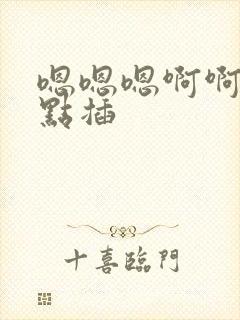 嗯嗯嗯啊啊
點插
十喜臨門